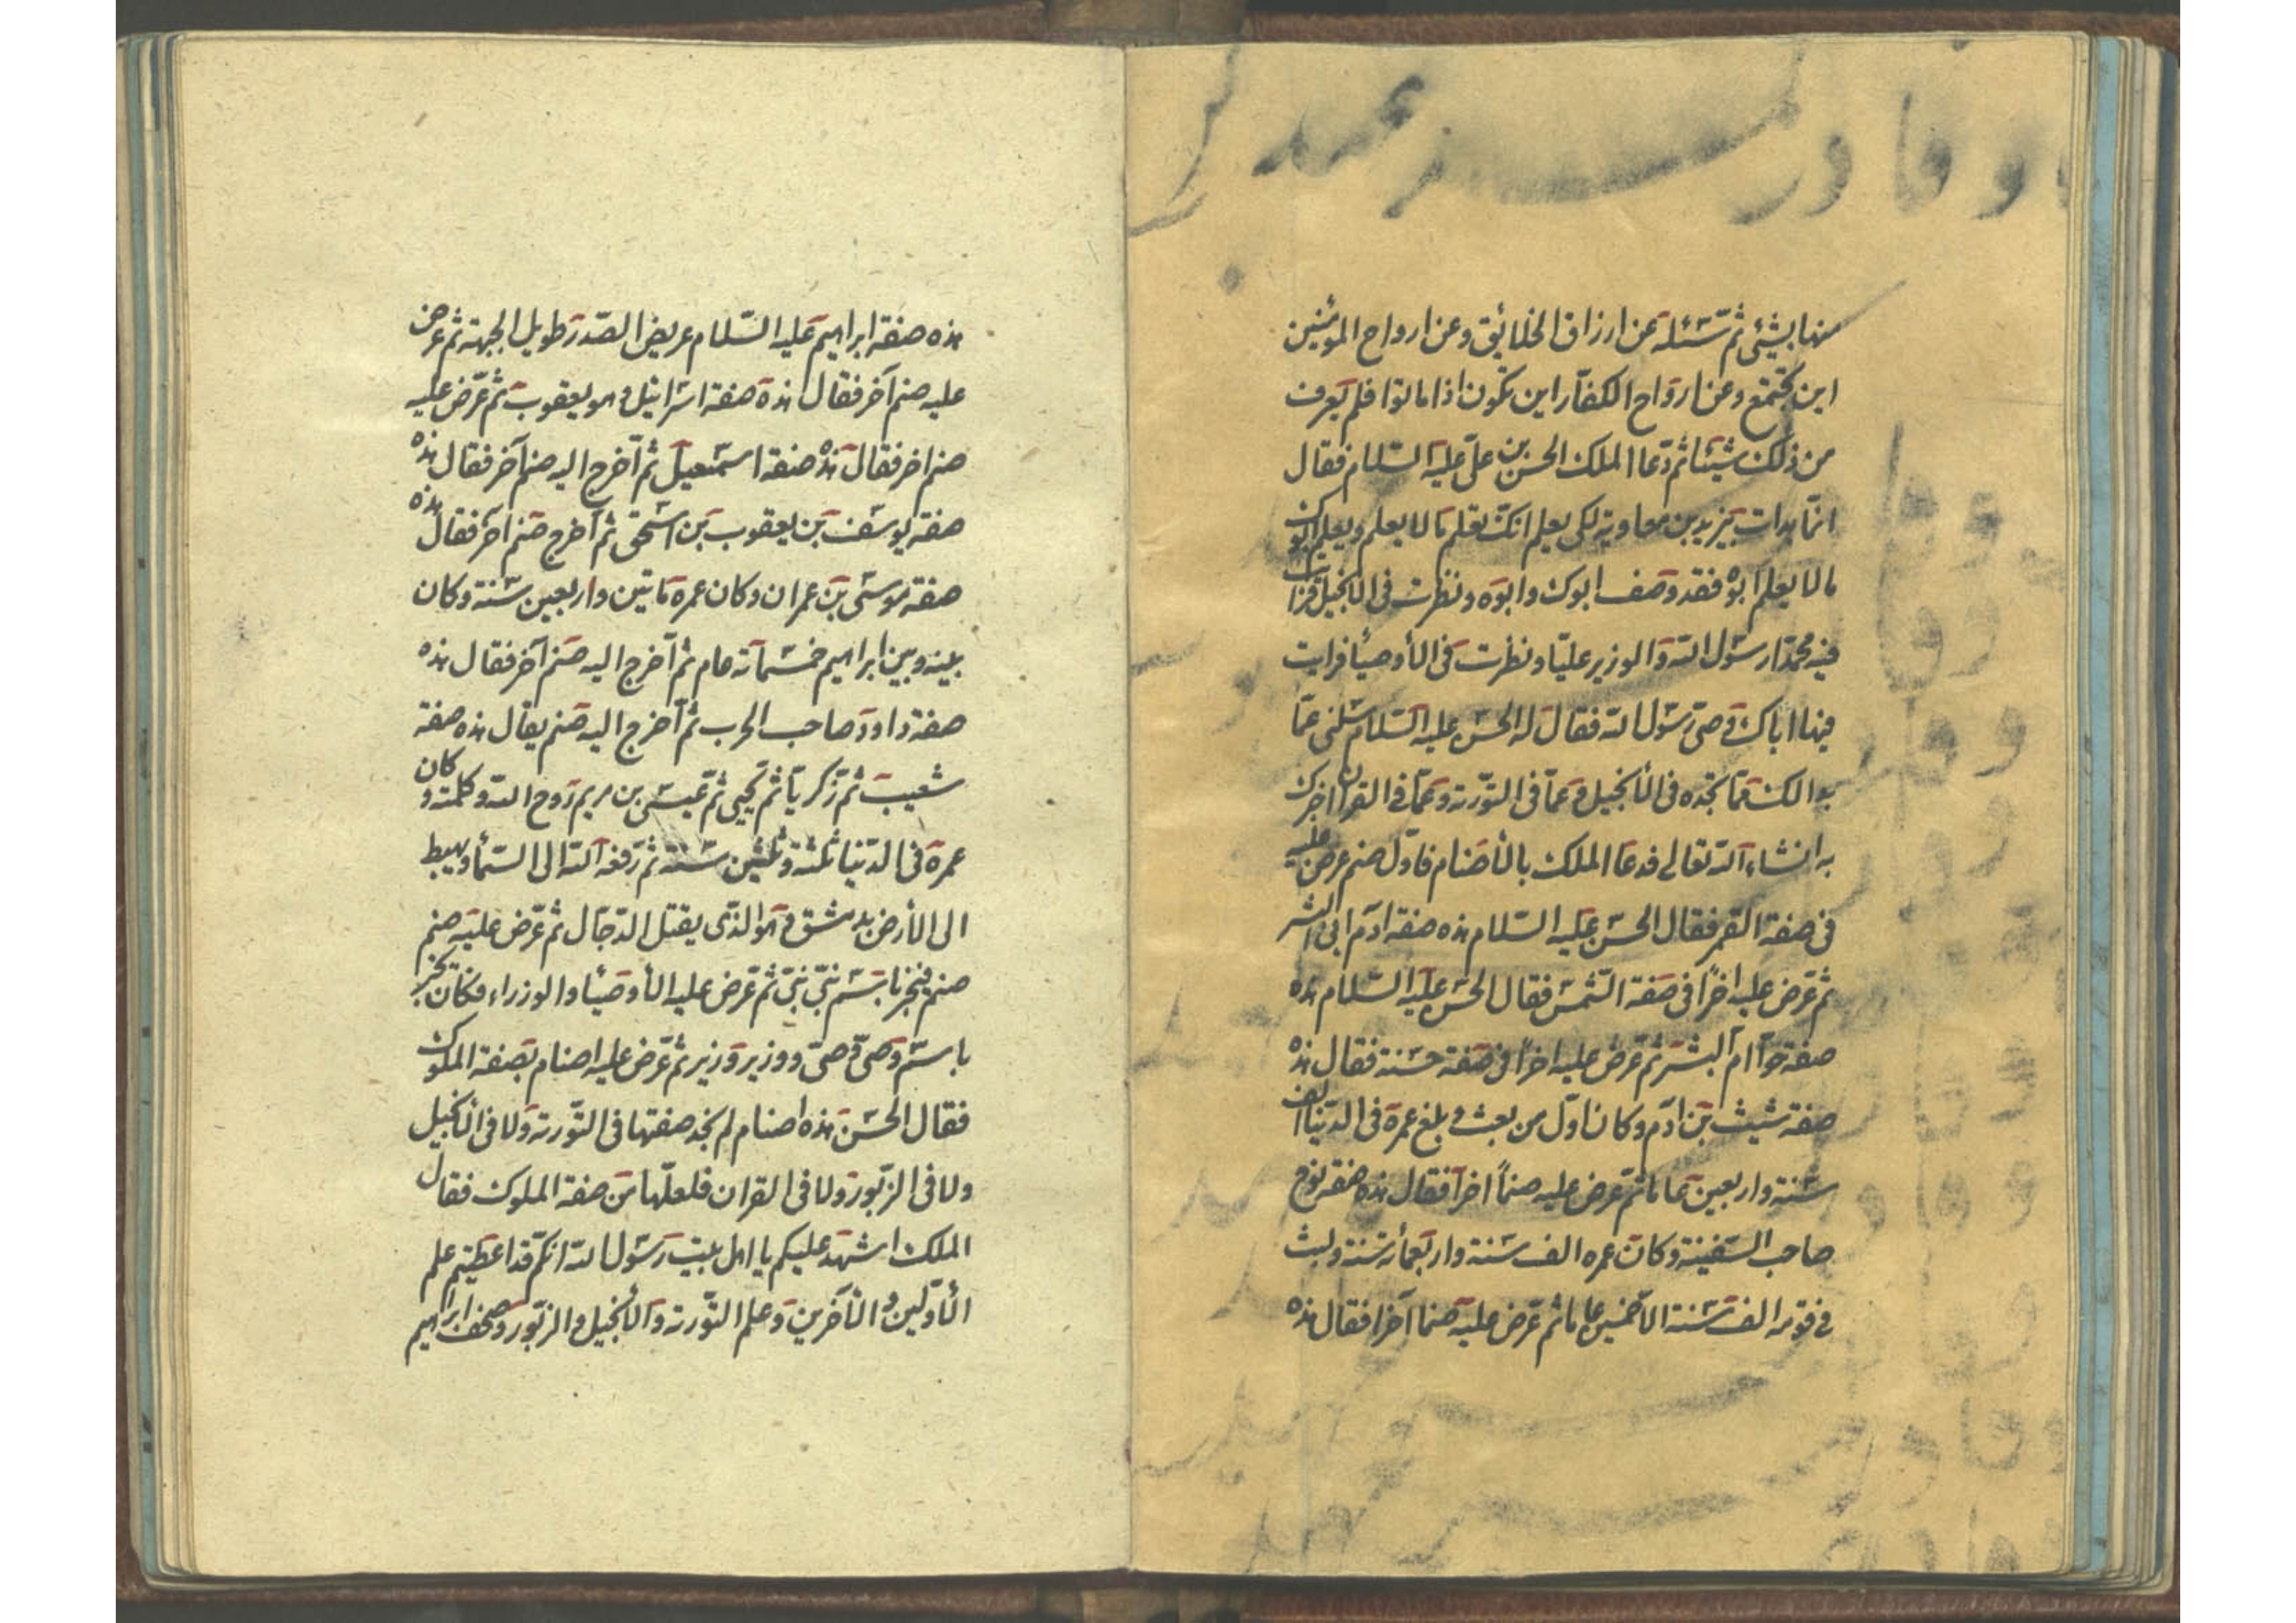 منها بشئى ثم سئله عن ارزاق الخلائق وعن ارواح المؤمنين
اين تجتمع وعن ارواح الكفار اين تكون اذا ماتوا فلم يعرف
من ذلك شيئا ثم دعا الملك الحسن بن على عليه السلام فقال
انما بدات بيزيد بن معاوية لكى يعلم انك تعلم ما لا يعلم ويعلم ابوك
ما لا يعلم ابوه فقد وصف ابوك وابوه ونظرت فى الانجيل فرايت
فيه محمدا رسول الله والوزير عليا ونظرت فى الأوصيأ فرايت
فيها اباك وصى رسول الله فقال له الحسن عليه السلام سلنى عما
بدا لك مما تجده فى الأنجيل وعما فى التورية وعما فى القران اخبرك
به انشاء الله تعالى فدعا الملك بالأصنام فاول صنم عرض عليه
فى صفة القمر فقال الحسن عليه السلام هذه صفة ادم ابى البشر
ثم عرض عليه اخرا فى صفة الشمس فقال الحسن عليه السلام هذه
صفة حوا ام البشر ثم عرض عليه اخرا فى صفة حسنة فقال هذه
صفة شيث بن ادم وكان اول من بعث و بلغ عمره فى الدنيا الف
سنة واربعين عاما ثم عرض عليه صنماً اخرا فقال هذه صفة نوح
صاحب السفينة وكان عمره الف سنة واربعمأئة سنة ولبث
فى قومه الف سنة الا خمسين عاما ثم عرض عليه صنما آخرا فقال هذه
هذه صفة ابراهيم عليه السلام عريض الصدر طويل الجبهة ثم عرض
عليه صنم آخر فقال هذه صفة اسرائيل و هو يعقوب ثم عرض عليه
صنم اخر فقال هذه صفة اسمعيل ثم اخرج اليه صنم آخر فقال هذه
صفة يوسف بن يعقوب بن اسحق ثم اخرج صنم آخر فقال هذه
صفة موسى بن عمران وكان عمره ماتين واربعين سنة وكان
بينه وبين ابراهيم خمسمآئة عام ثم اخرج اليه صنم آخر فقال هذه
صفة داود صاحب الحرب ثم اخرج اليه صنم يقال هذه صفة
شعيب ثم زكريا ثم يحيى ثم عيسى بن مريم روح الله وكلمته وكان
عمره فى الدنيا ثلثة وثلثين سنة ثم رفعه الله الى السمأ ويهبط
الى الأرض بدمشق و هو الذى يقتل الدجال ثم عرض عليه صنم
صنم فيخبر باسم نبى نبى ثم عرض عليه الأوصيأ والوزراء فكان يخبر
باسم وصى وصى و وزير وزير ثم عرض عليه اصنام بصفة الملوك
فقال الحسن هذه اصنام لم نجد صفتها فى التورية ولا فى الانجيل
ولا فى الزبور ولا فى القران فلعلها من صفة الملوك فقال
الملك اشهد عليكم يا اهل بيت رسول الله انكم قد اعطيتم علم
الأولين و الآخرين وعلم التورية والأنجيل و الزبور وصحف ابراهيم